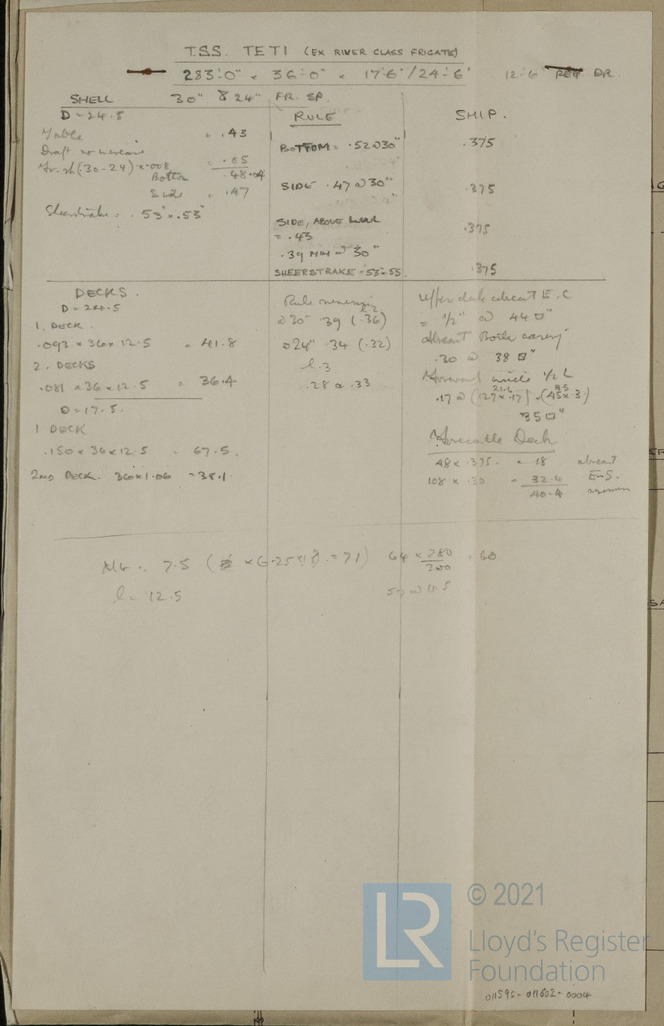 T.S.S. TETI (EX RIVER CLASS FRIGATE)
283'-0" x 36'-0" x 17'-6"/24'-6" 12'-6 DR.
SHELL 30" & 24" FR. SP.
D = 24.5
Table = .43
Draft no increase
Fr. sp (30-24) x .008 = .05
Bottom .48
Side = .47
Sheerstrake = .53 x .53
RULE
BOTTOM = .52 @ 30"
SIDE .47 @ 30"
SIDE, ABOVE
= .43
.39 MIN @ 30"
SHEERSTRAKE = .53 .55
SHIP.
.375
.375
.375
.375
DECKS.
D = 24.5
1. DECK.
.093 x 36 x 12.5 = 41.8
2. DECKS
.081 x 36 x 12.5 = 36.4
D = 17.5.
1 DECK
.150 x 36 x 12.5 = 67.5.
2ND DECK. 36 x 1.06 = 38.1
Rule
@ 30" .39 (.36)
@ 24" .34 (.32)
l.3
.28 .33
Upper deck abreast E.C
= 1/2" @ 44 □"
Abreast Boiler casing
.30 @ 38 □"
Forward 1/2 L
.17 @ (127 x .17) (45 x .3)
35 □"
Forecastle Deck
48 x .375 = 18 abreast
108 x .30 = 32.4 E-S.
40.4
7.5 ( x 6.25 = 71) 64 x 280/300 = 60
l = 12.5
© 2021
LR
Lloyd's Register
Foundation
011595-011602-0004